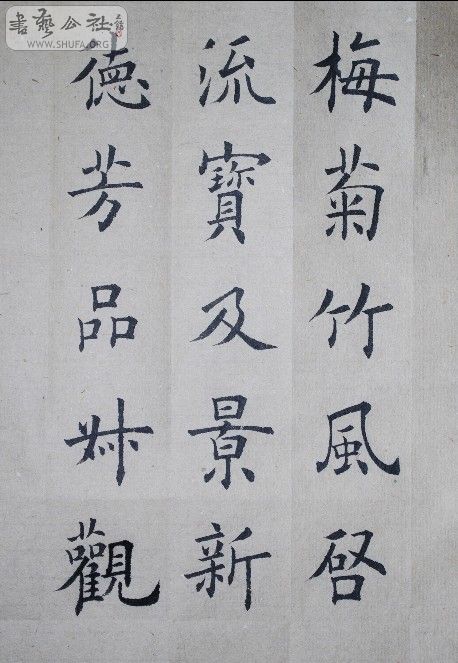 梅菊竹風啓
流寶及景新
德芳品烌觀
書藝公社
www.SHUFA.ORG